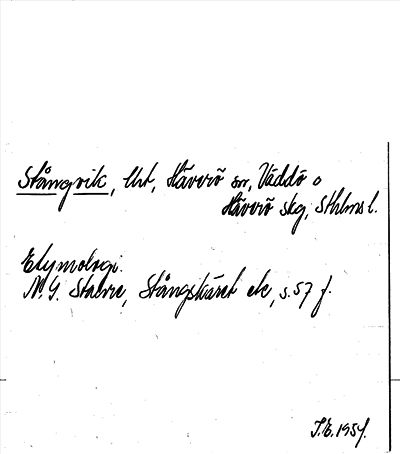 Stångvik, Urt, Häverö sn, Väddö o
Häverö skg, Sthlms l.
Etymologi.
N. G. Stalvre, Stångskäret etc, s. 57 f.
J.E. 1954.